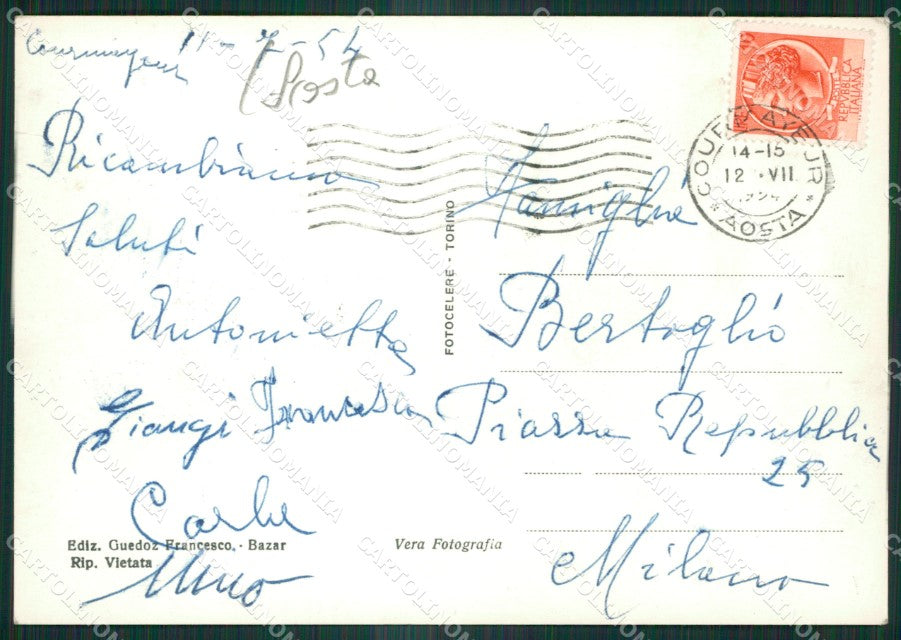 Courmayeur 11-7-54
Aosta
Ricambiamo
Saluti
Antonietta
Giangi Francesca
Carla
Ediz. Guedoz Francesco. - Bazar
Rip. Vietata
Vera Fotografia
FOTOCELERE - TORINO
REPVBBLICA
ITALIANA
COURMAYEUR
14-15
12 · VII
1954
* AOSTA *
Famiglia
Bertoglio
Piazza Repubblica
25
Milano
CARTOLINOMANIA